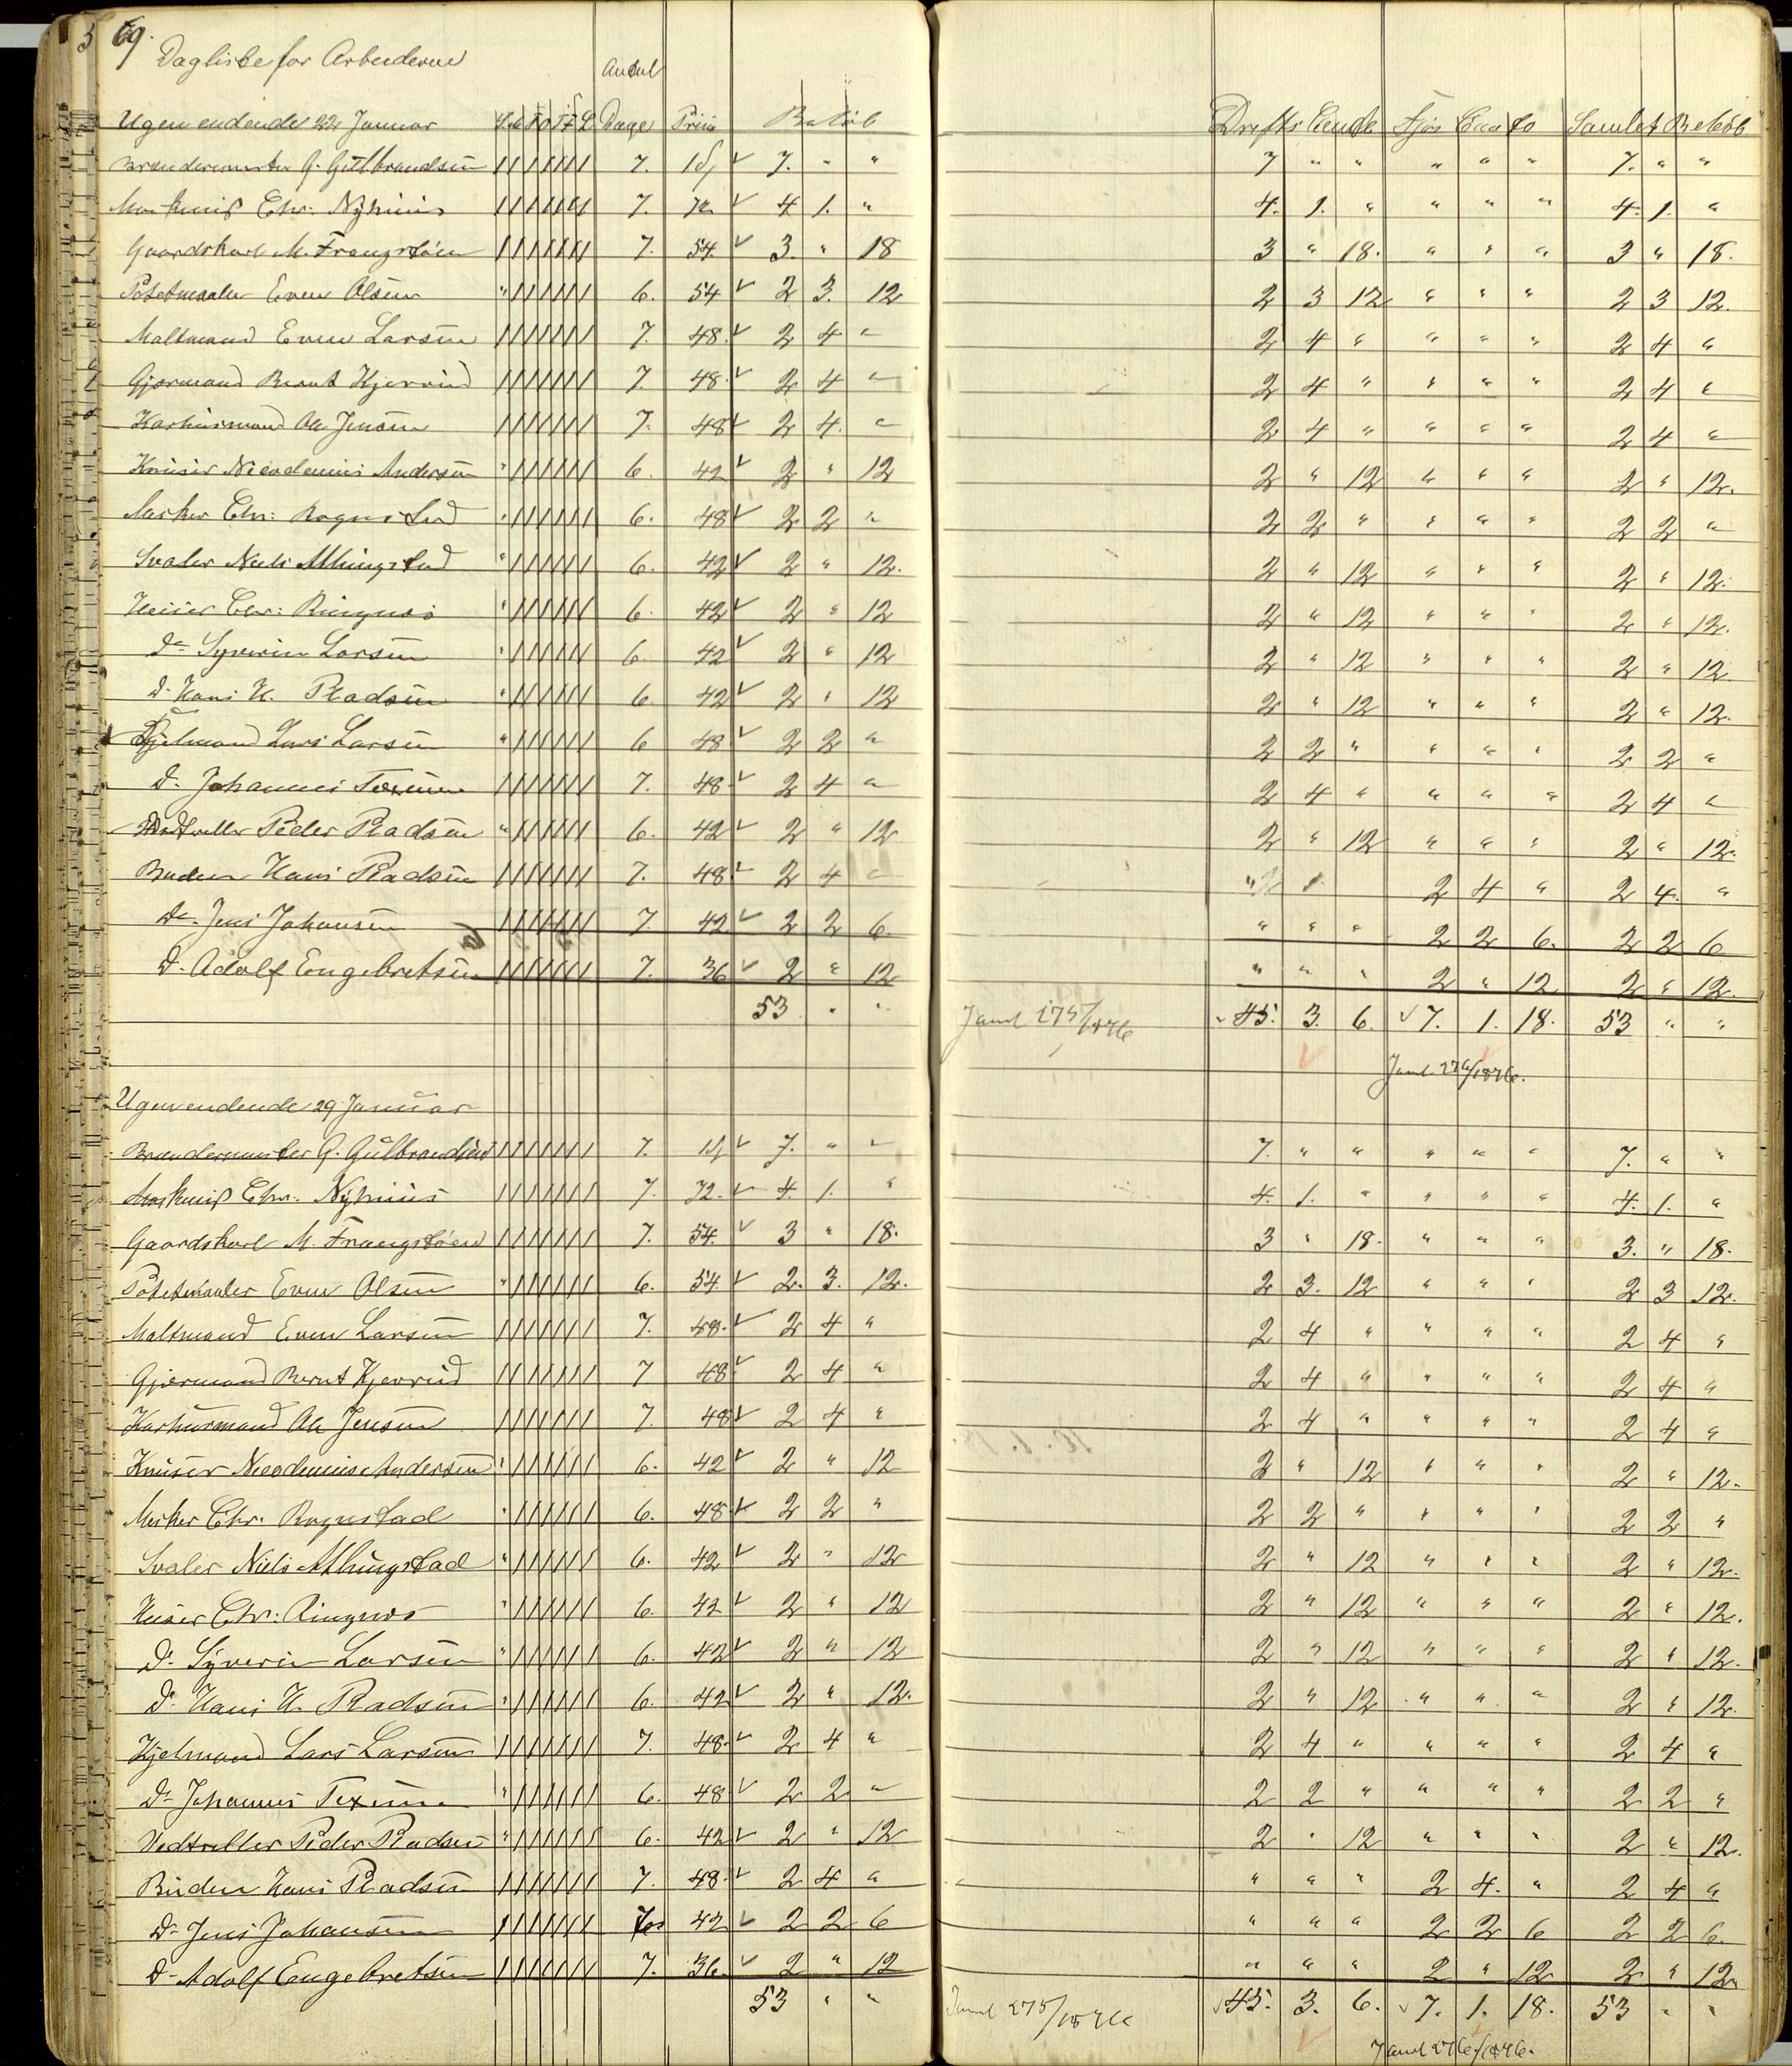 69.
Dagliste for Arbeiderne
Antal
Ugen endende 22 Januar S M T O T F L Dage Priis Beløb Drifts Conto Fjøs Conto Samlet Beløb
Brændermester G. Gulbrandsen 7. 1 7. " " 7 " " " " " 7. " "
Chr: Nyhuus 7. 72 4 1. " 4. 1. " " " " 4. 1. "
Gaardskarl M. Frangstöen 7. 54 3. " 18 3 " 18. " " " 3 " 18.
Potetmaler Even Olsen " 6. 54 2 3. 12 2 3 12 " " " 2 3 12.
Maltmand Even Larsen 7. 48. 2 4 " 2 4 " " " " 2 4 "
Gjærmand Bernt Kjerrud 7. 48. 2 4 " 2 4 " " " " 2 4 "
Karhusmand Ole Jensen 7. 48 2 4. " 2 4 " " " " 2 4 "
Knuser Nicodemus Andersen " 6. 42 2 " 12 2 " 12 " " " 2 " 12.
Mesker Chr: Rognstad " 6. 48 2 2 " 2 2 " " " " 2 2 "
Svaler Niels Alhungstad " 6. 42 2 " 12. 2 " 12 " " " 2 " 12.
Heiser Chr: Ringnes " 6. 42 2 " 12 2 " 12 " " " 2 " 12.
Do Syverin Larsen " 6 42 2 " 12 2 " 12 " " " 2 " 12.
Do Hans H. Pladsen " 6 42 2 " 12 2 " 12 " " " 2 " 12.
Kjelmand Lars Larsen " 6 48 2 2 " 2 2 " " " " 2 2 "
Do Johannes Texum 7. 48 2 4 " 2 4 " " " " 2 4 "
Vedtriller Peder Pladsen " 6. 42 2 " 12 2 " 12 " " " 2 " 12.
Buden Hans Pladsen 7. 48 2 4 " " 2 4 " 2 4. "
Do Jens Johansen 7. 42 2 2 6. " " " 2 2 6. 2 2 6
Do Adolf Engebretsen 7. 36 2 " 12 " " " 2 " 12 2 " 12.
53 " " Jour 275/1876 45. 3. 6. 7. 1. 18. 53 " "
Jour 276/1876.
Ugen endende 29 Januar
Brændermester G. Gulbrandsen 7. 1 7. " " 7. " " " " " 7. " "
Chr. Nyhuus 7. 72. 4. 1. " 4. 1. " " " " 4. 1. "
Gaardskarl M. Frangstöen 7. 54. 3 " 18. 3 " 18. " " " 3. " 18.
Potetmaler Even Olsen " 6. 54. 2. 3. 12. 2 3. 12 " " " 2 3 12.
Maltmand Even Larsen 7. 48. 2 4 " 2 4 " " " " 2 4 "
Gjærmand Bernt Kjerrud 7 48. 2 4 " 2 4 " " " " 2 4 "
Karhusmand Ole Jensen 7. 48 2 4 " 2 4 " " " " 2 4 "
Knuser Nicodemus Andersen " 6. 42 2 " 12 2 " 12 " " " 2 " 12.
Mesker Chr. Rognstad " 6. 48. 2 2 " 2 2 " " " " 2 2 "
Svaler Niels Alhungstad " 6. 42 2 " 12 2 " 12 " " " 2 " 12.
Heiser Chr: Ringnes " 6. 42 2 " 12 2 " 12 " " " 2 " 12.
Do Syverin Larsen " 6. 42 2 " 12 2 " 12 " " " 2 " 12.
Do Hans H. Pladsen " 6. 42 2 " 12. 2 " 12 " " " 2 " 12.
Kjelmand Lars Larsen 7. 48. 2 4 " 2 4 " " " " 2 4 "
Do Johannes Texum " 6. 48 2 2 " 2 2 " " " " 2 2 "
Vedtriller Peder Pladsen " 6. 42 2 " 12 2 " 12 " " " 2 " 12.
Buden Hans Pladsen 7. 48. 2 4 " " " " 2 4. " 2 4 "
Do Jens Johansen 7 42 2 2 6 " " " 2 2 6 2 2 6.
Do Adolf Engebretsen 7. 36. 2 " 12 " " " 2 " 12 2 " 12
53 " " Jour 275/1876 45. 3. 6. 7. 1. 18. 53 " "
Jour 276/1876.